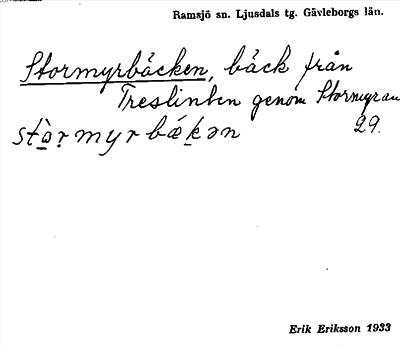 Ramsjö sn. Ljusdals tg. Gävleborgs län.
Stormyrbäcken, bäck från
Treslinten genom Stormyran
stò̱ṛmyrbǽḵən 29.
Erik Eriksson 1933